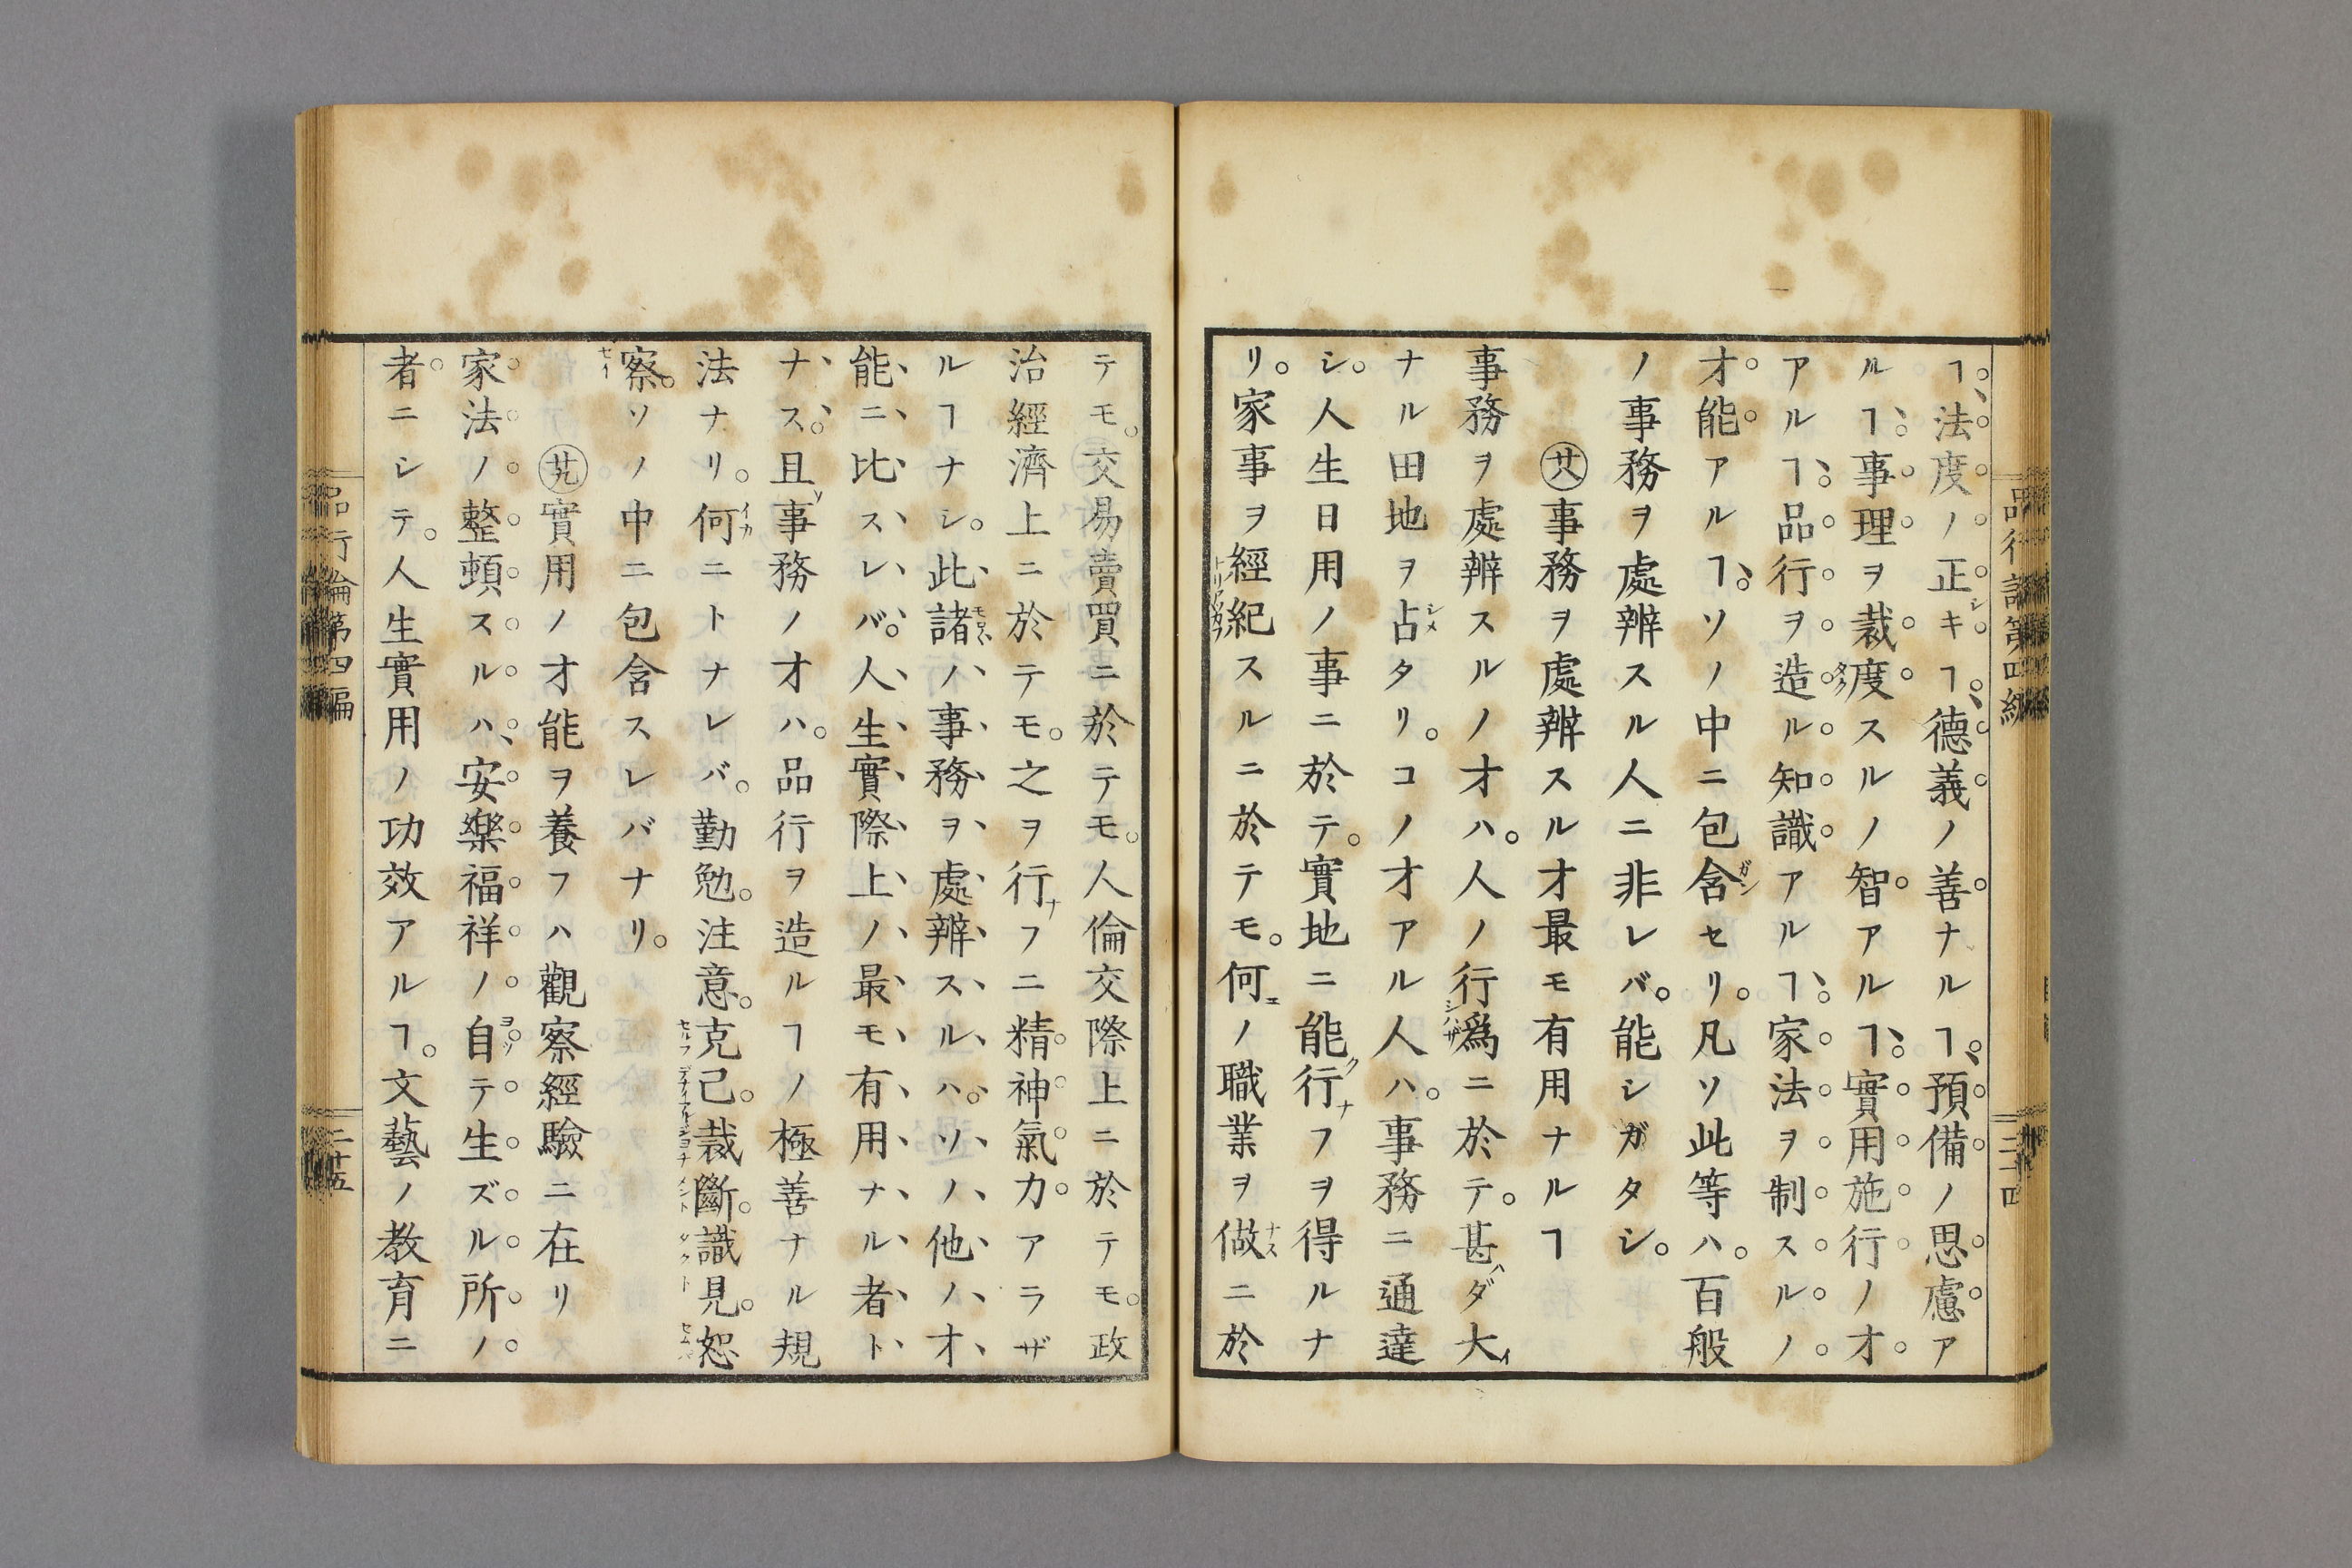 品行論第四編
二十四
ヿ、法度ノ正シキヿ、德義ノ善ナルヿ、預備ノ思慮ア
ルヿ、事理ヲ裁度スルノ智アルヿ、實用施行ノ才
アルヿ、品行ヲ造ル知識アルヿ、家法ヲ制スルノ
才能アルヿ、ソノ中ニ包含セリ。凡ソ此等ハ。百般
ノ事務ヲ處辨スル人ニ非レバ。能シガタシ。
㐧事務ヲ處辨スル才最モ有用ナルヿ
事務ヲ處辨スルノ才ハ。人ノ行爲ニ於テ。甚ハダ大イ
ナル田地ヲ占タリ。コノ才アル人ハ。事務ニ通達
シ。人生日用ノ事ニ於テ。實地ニ能ク行ナフヲ得ルナ
リ。家事ヲ經紀スルニ於テモ。何ノ職業ヲ做ニ於
テモ。交易賣買ニ於テモ。人倫交際上ニ於テモ。政
治經濟上ニ於テモ。之ヲ行ナフニ精神氣力アラザ
ルヿナシ。此諸ノ事務ヲ處辨スルハ。ソノ他ノ才
能ニ比スレバ。人生實際上ノ最モ有用ナル者ト
ナス。且ツ事務ノ才ハ。品行ヲ造ルヿノ極善ナル規
法ナリ。何ニトナレバ。勤勉。注意。克己。裁斷。識見。恕
察。ソノ中ニ包含スレバナリ。
實用ノ才能ヲ養フハ觀察經驗ニ在リ
家法ノ整頓スルハ、安樂福祥ノ自テ生ズル所ノ
者ニシテ。人生實用ノ功效アルヿ。文藝ノ教育ニ
品行論第四編
二十五